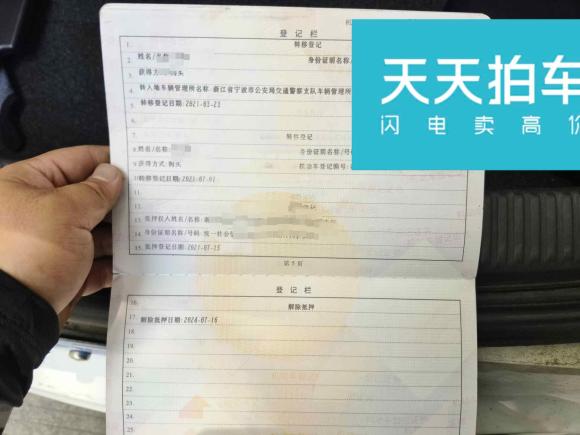 登记栏
1. 转移登记
2. 姓名/名称 身份证明名称/
3. 获得方式:购买
4. 转入地车辆管理所名称:浙江省宁波市公安局交通警察支队车辆管理所
5. 转移登记日期:2021-03-23
6.
7. 转移登记
8. 姓名/名称 身份证明名称/号码
9. 获得方式:购买 机动车登记编号:
10. 转移登记日期:2021-07-01
11.
12.
13. 抵押权人姓名/名称:
14. 身份证明名称/号码:统一社会
15. 抵押登记日期:2021-07-15
第5页
登记栏
16. 解除抵押
17. 解除抵押日期:2024-07-16
18.
19.
20.
21.
22.
23.
24.
25.
天天拍车
闪电卖高价